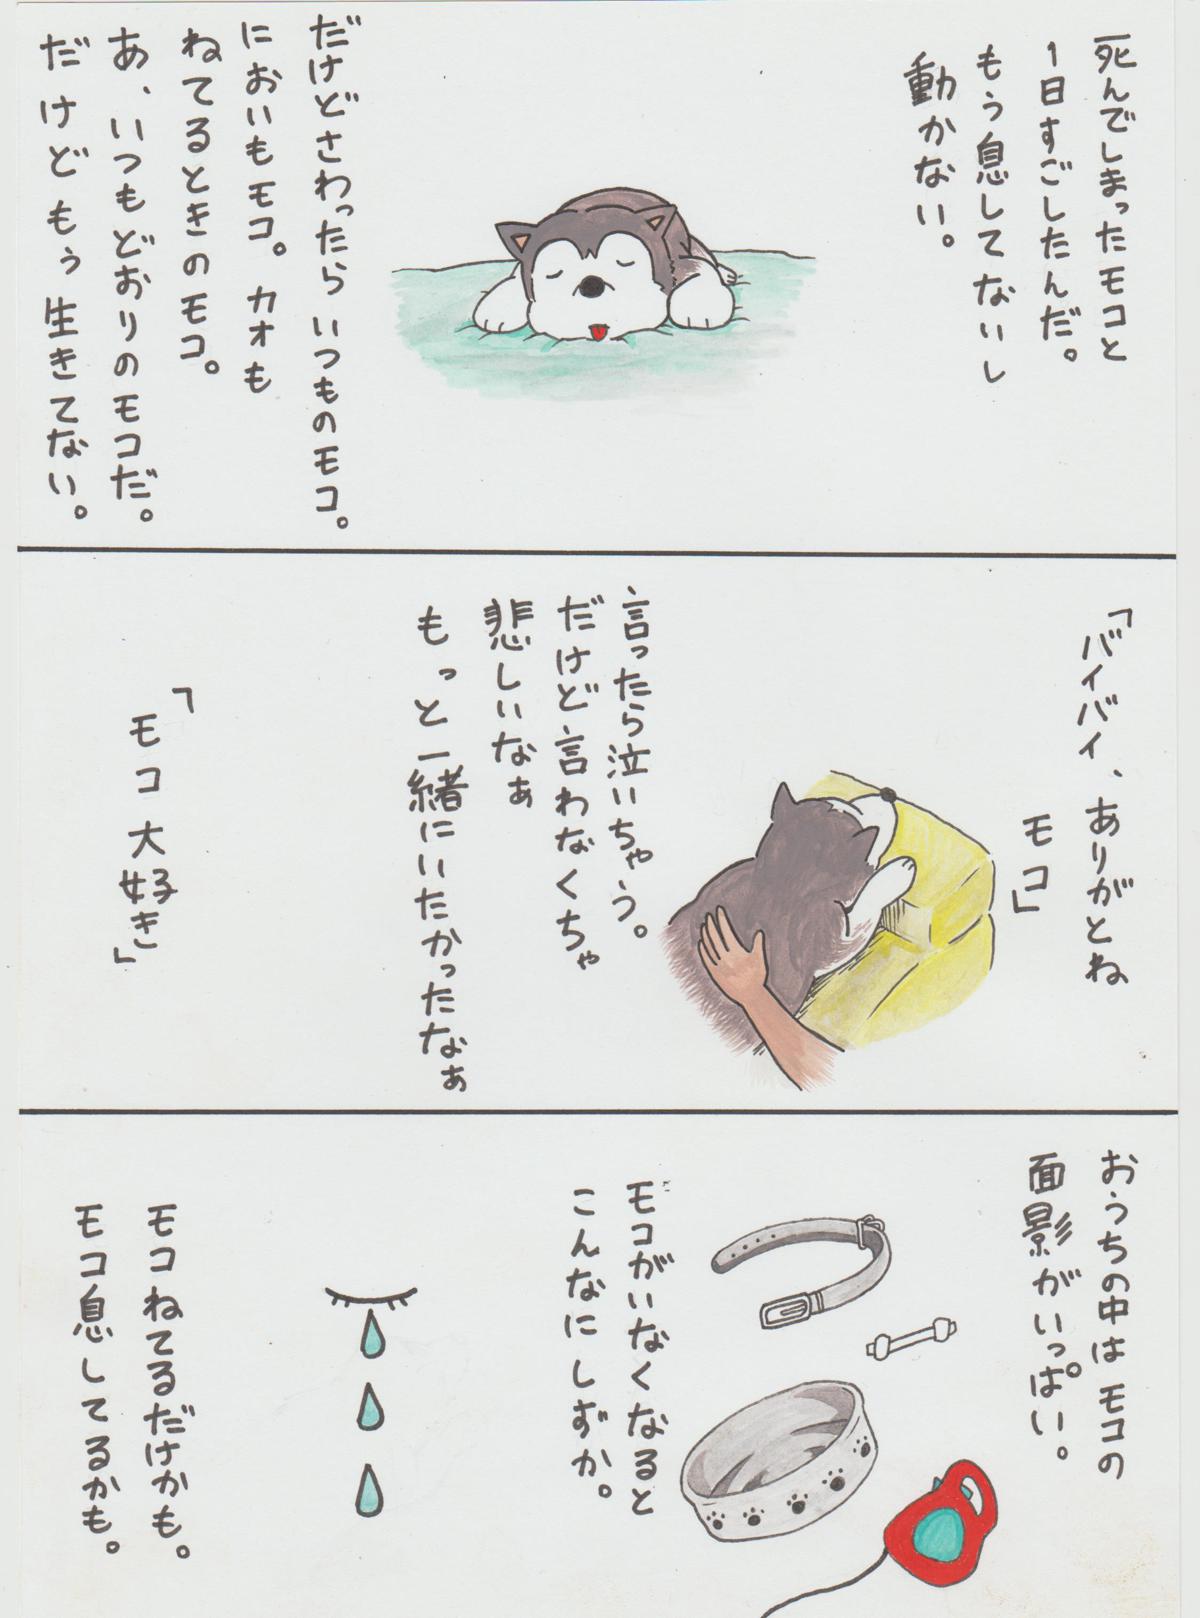 死んでしまったモコと
1日すごしたんだ。
もう息してないし
動かない。
だけどさわったらいつものモコ。
においもモコ。カオも
ねてるときのモコ。
あ、いつもどおりのモコだ。
だけどもぅ生きてない。
「バイバイ、ありがとね
モコ」
言ったら泣いちゃう。
だけど言わなくちゃ
悲しいなぁ
もっと一緒にいたかったなぁ
「モコ大好き」
おうちの中はモコの
面影がいっぱい。
モコがいなくなると
こんなにしずか。
モコねてるだけかも。
モコ息してるかも。